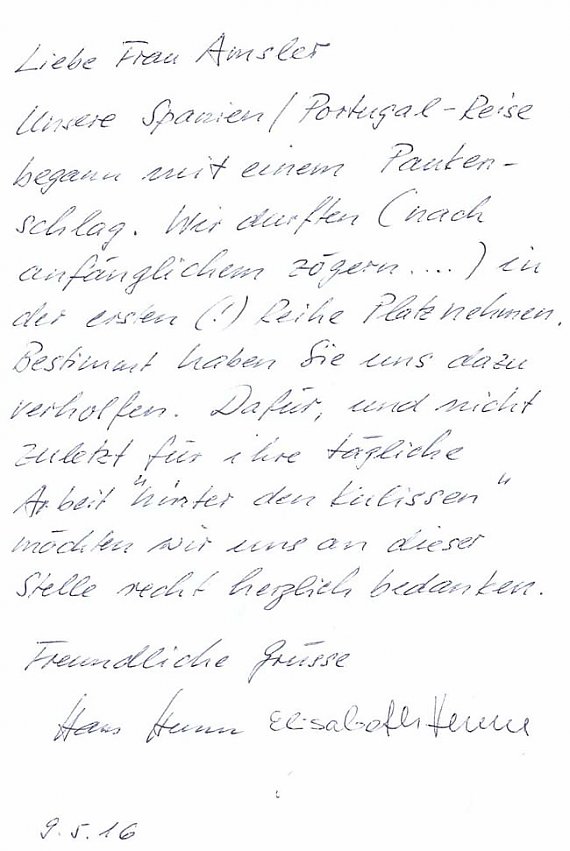 Liebe Frau Amsler
Unsere Spanien/Portugal-Reise
begann mit einem Pauken-
schlag. Wir durften (nach
anfänglichem zögern....) in
der ersten (!) Reihe Platz nehmen.
Bestimmt haben Sie uns dazu
verholfen. Dafür, und nicht
zuletzt für ihre tägliche
Arbeit "hinter den Kulissen"
möchten wir uns an dieser
Stelle recht herzlich bedanken.
Freundliche Grüsse
Hans Elisabeth
9.5.16